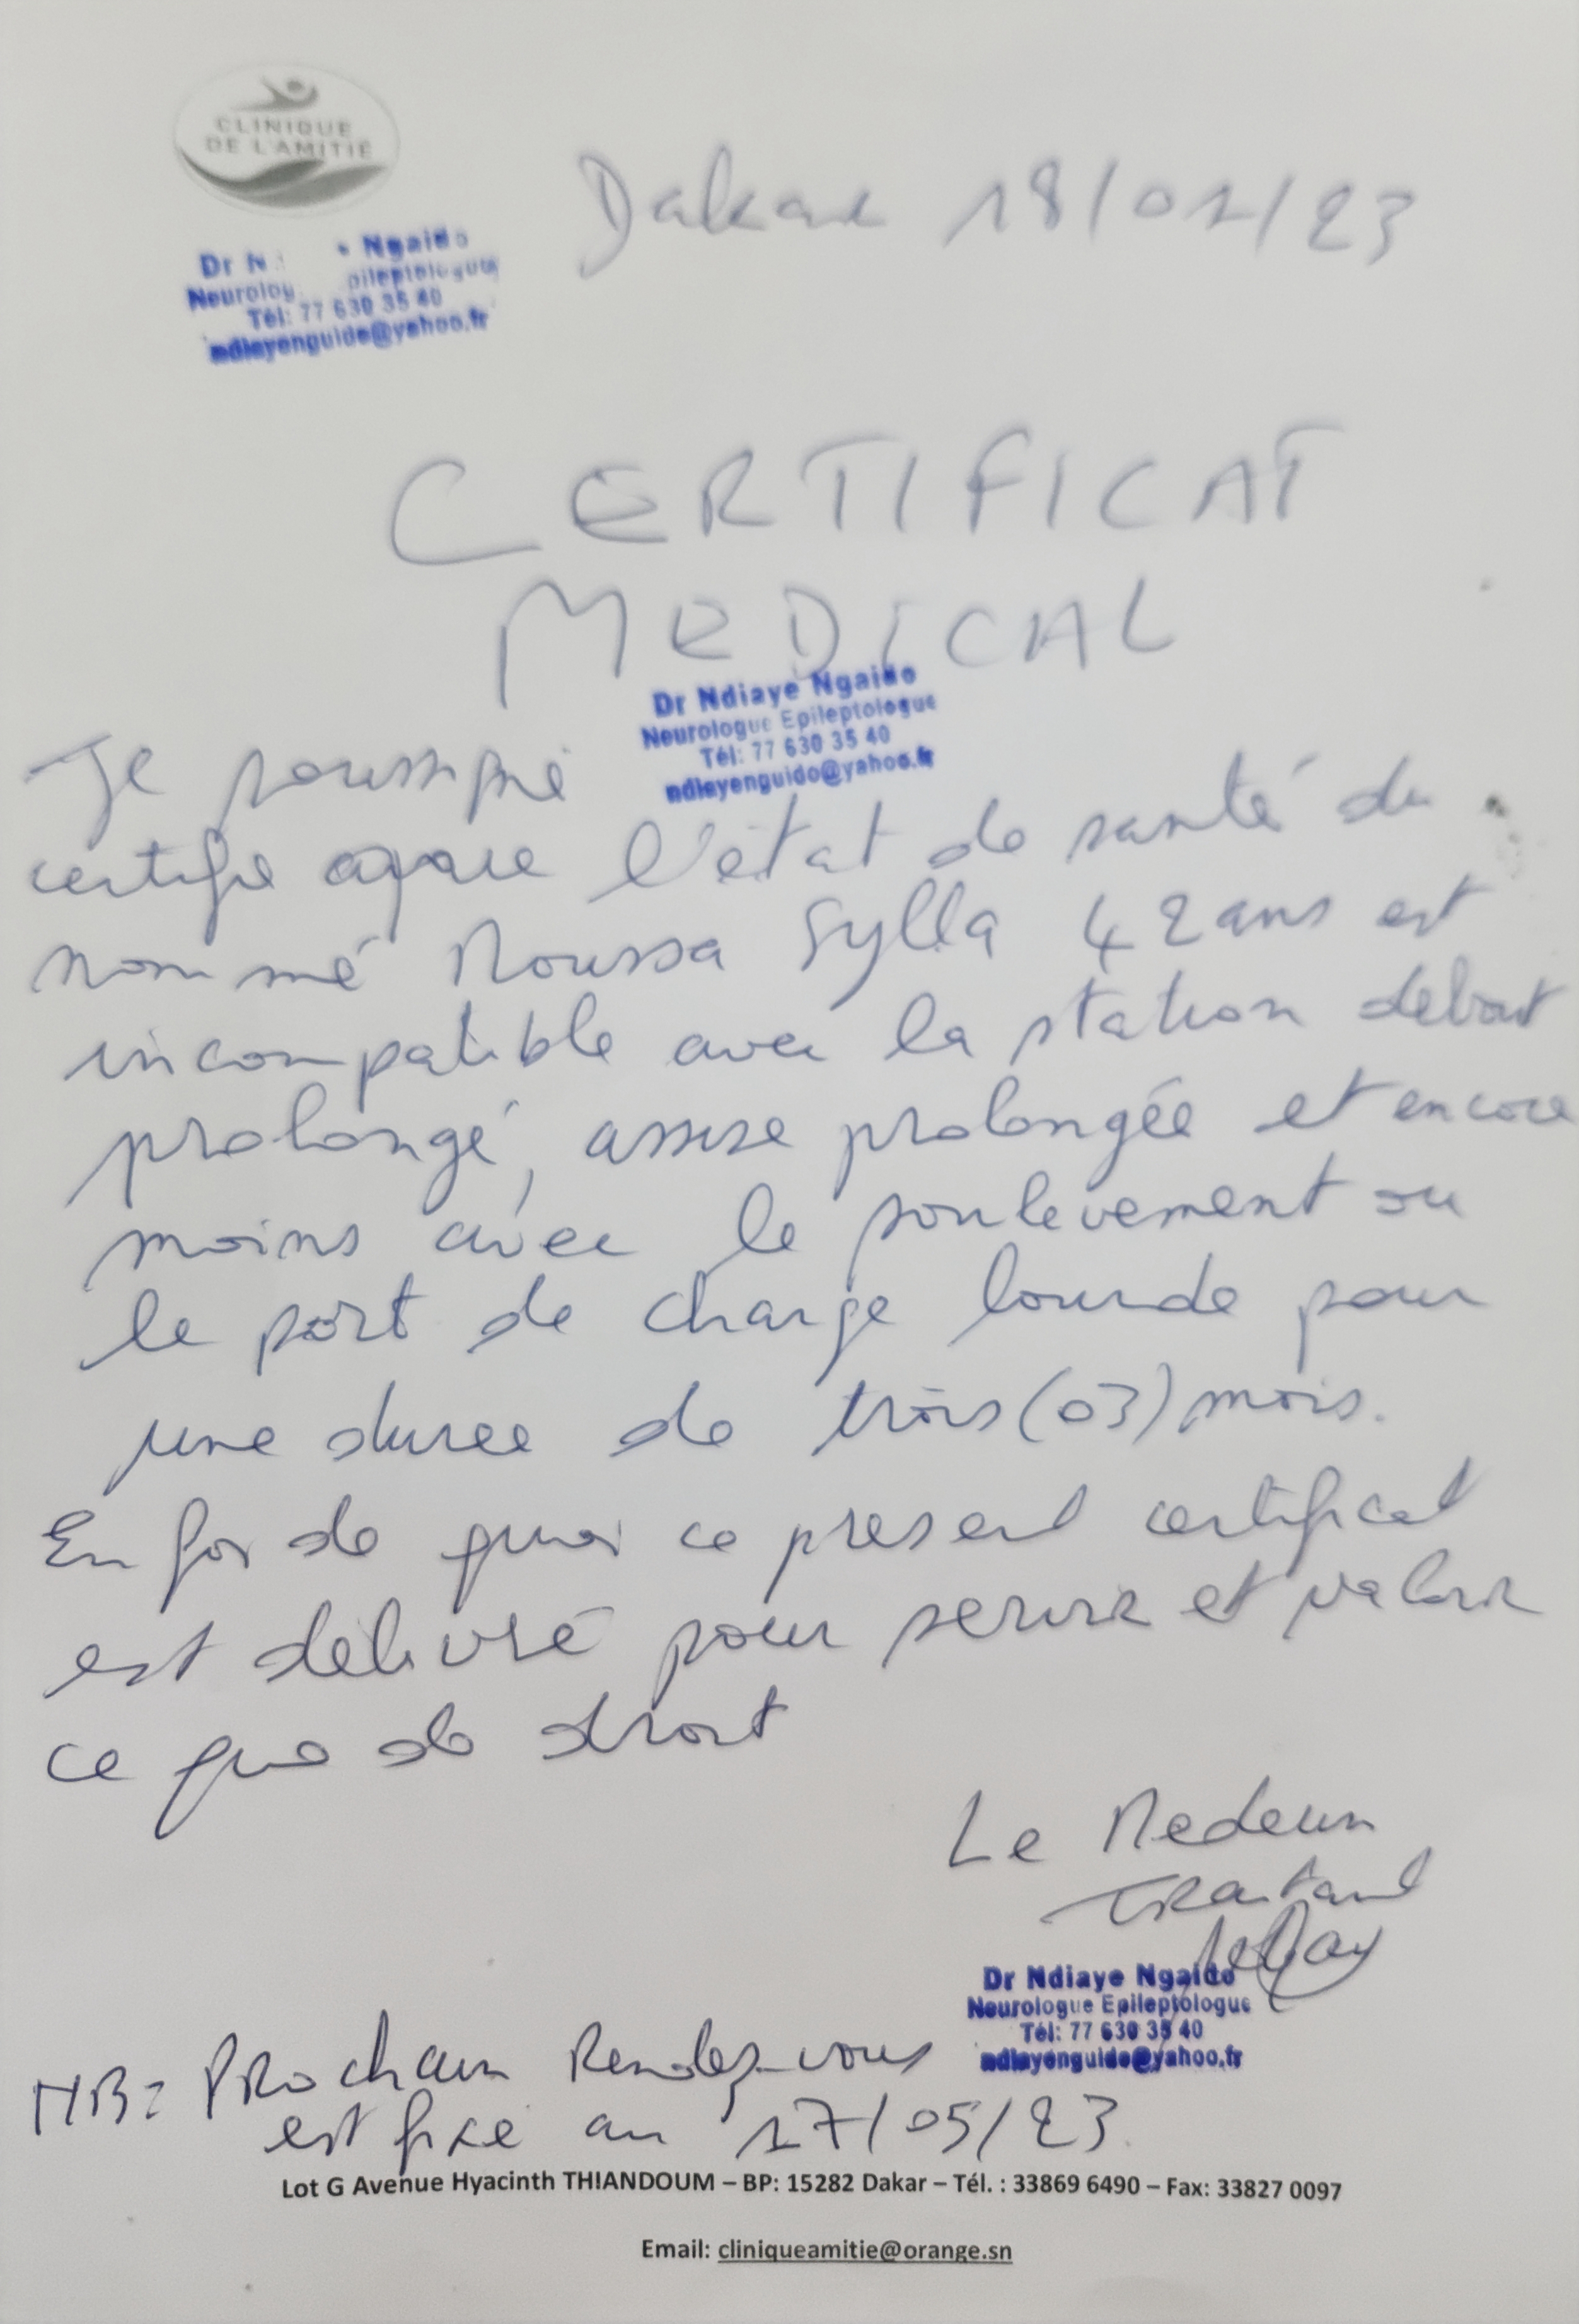 CLINIQUE
DE L'AMITIÉ
Dakar 18/01/23
Dr N Ngaido
Neurolog pileptologue
Tél: 77 630 35 40
ndiayenguido@yahoo.fr
CERTIFICAT
MEDICAL
Dr Ndiaye Ngaido
Neurologue Epileptologue
Tél: 77 630 35 40
ndiayenguido@yahoo.fr
Je soussigné
certifie que l'état de santé du
nommé Moussa Sylla 42 ans est
incompatible avec la station debout
prolongé, assise prolongée et encore
moins avec le soulevement ou
le port de charge lourde pour
une duree de trois (03) mois.
En foi de quoi ce present certificat
est délivré pour servir et valoir
ce que de droit
Le Medecin
Traitant
Dr Ndiaye Ngaido
Neurologue Epileptologue
Tél: 77 630 35 40
ndiayenguido@yahoo.fr
NB: Prochain Rendez-vous
est fixe au 17/05/23.
Lot G Avenue Hyacinth THIANDOUM – BP: 15282 Dakar – Tél. : 33869 6490 – Fax: 33827 0097
Email: cliniqueamitie@orange.sn